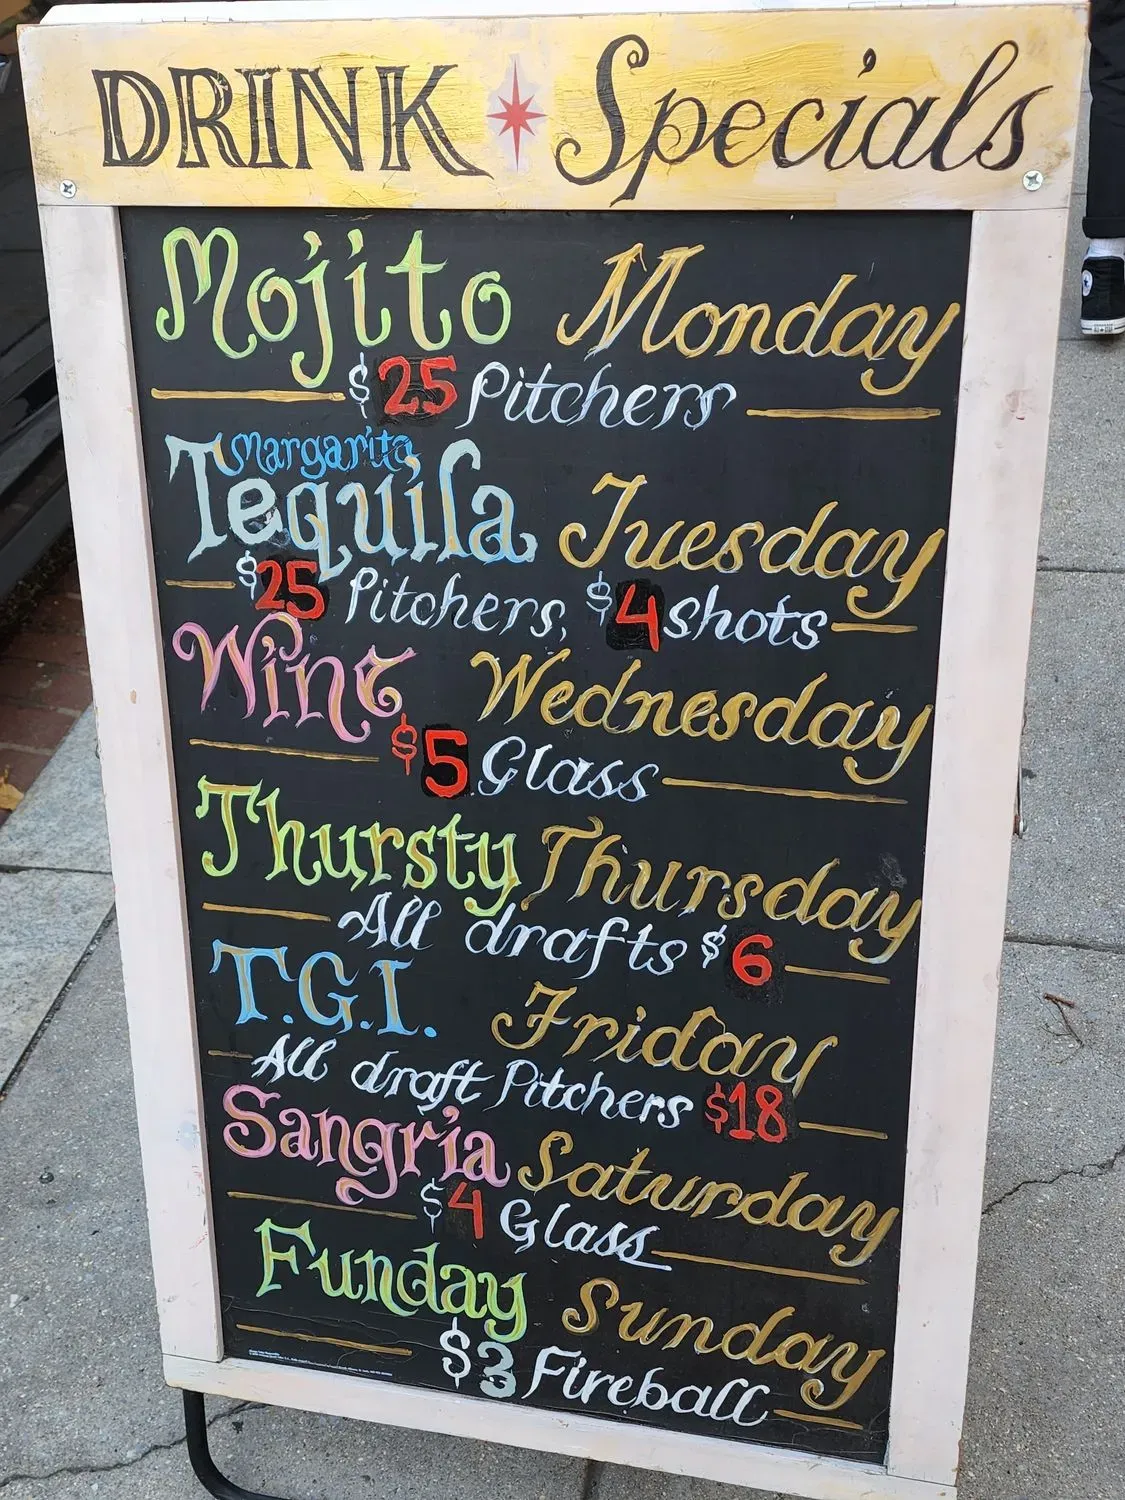 DRINK Specials
Mojito Monday
$25 Pitchers
Margarita
Tequila Tuesday
$25 Pitchers, $4 shots
Wine Wednesday
$5 Glass
Thursty Thursday
All drafts $6
T.G.I. Friday
All draft Pitchers $18
Sangria Saturday
$4 Glass
Funday Sunday
$3 Fireball